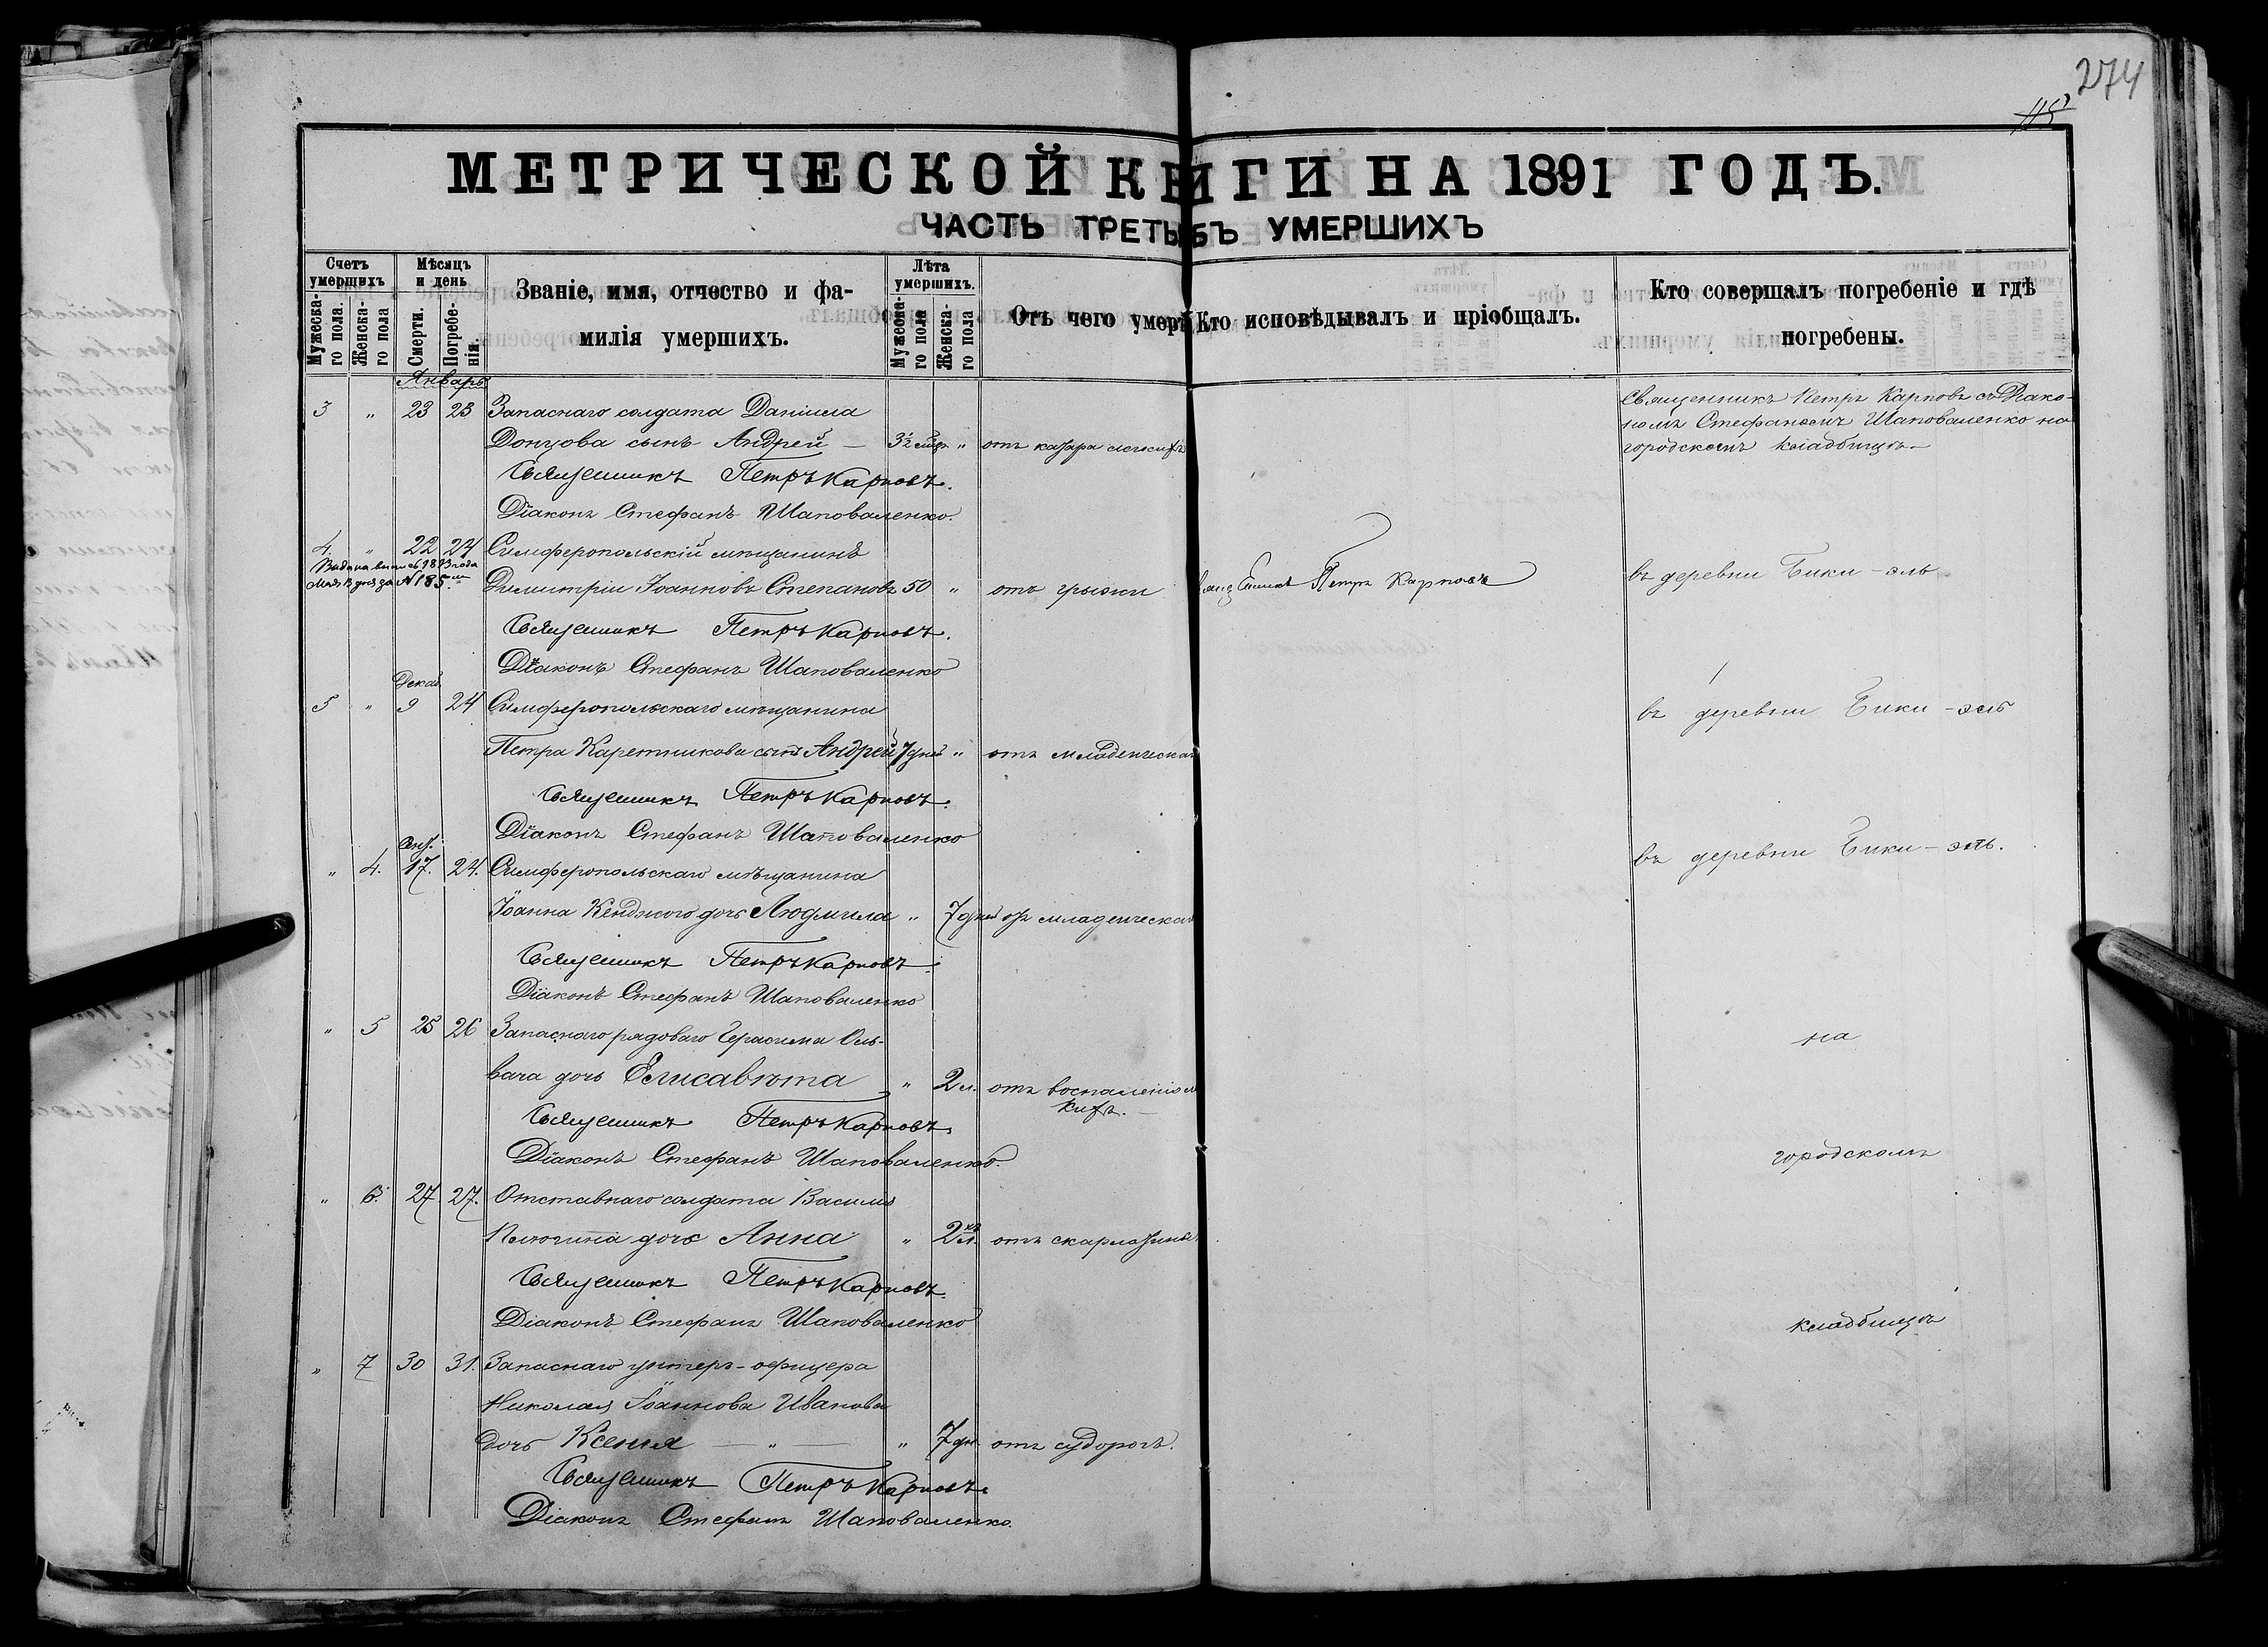 274
115
МЕТРИЧЕСКОЙ КНИГИ НА 1891 ГОДЪ.
ЧАСТЬ ТРЕТЬЯ О УМЕРШИХЪ
Счетъ умершихъ
Мѣсяцъ и день
Званіе, имя, отчество и фа-
милія умершихъ.
Лѣта умершихъ.
Отъ чего умеръ
Кто исповѣдывалъ и пріобщалъ.
Кто совершалъ погребеніе и гдѣ
погребены.
Мужеска-
го пола.
Женска-
го пола
Смерти.
Погребе-
нія.
Мужеска-
го пола
Женска-
го пола
Январь
3 " 23 25 Запаснаго солдата Даніила
Донцова сынъ Андрей — 3½ мѣс. " отъ катара легкихъ
Священникъ Петръ Карповъ.
Діаконъ Стефанъ Шаповаленко.
Священникъ Петръ Карповъ съ Діако-
номъ Стефаномъ Шаповаленко на
городскомъ кладбищѣ —
4. " 22 24 Симферопольскій мѣщанинъ
Выдана выпись 1893 года
Мая 13 дня за № 185
Димитрій Іоанновъ Степановъ 50 " отъ грыжи
Священникъ Петръ Карповъ
въ деревни Бики-эль
Священникъ Петръ Карповъ.
Діаконъ Стефанъ Шаповаленко
Декаб.
5 " 9 24 Симферопольскаго мѣщанина
Петра Каретникова сынъ Андрей 7 дней " отъ младенческой
въ деревни Бики-эль
Священникъ Петръ Карповъ.
Діаконъ Стефанъ Шаповаленко
" 4. 17. 24. Симферопольскаго мѣщанина
Іоанна дочь Людмила " 7 дней отъ младенческой
въ деревни Бики-эль.
Священникъ Петръ Карповъ.
Діаконъ Стефанъ Шаповаленко
" 5 25 26 Запаснаго рядоваго Герасима Оль-
вача дочь Елисавѣта " 2 л. отъ воспаленія
кихъ. —
на
Священникъ Петръ Карповъ.
Діаконъ Стефанъ Шаповаленко.
городскомъ
" 6. 27 27. Отставнаго солдата Василія
дочь Анна " 2 л. отъ скарлатины
Священникъ Петръ Карповъ.
Діаконъ Стефанъ Шаповаленко
кладбищѣ
" 7 30 31. Запаснаго унтеръ-офицера
Николая Іоаннова Иванова
дочь Ксенія — " — " 7 дн. отъ судорогъ.
Священникъ Петръ Карповъ.
Діаконъ Стефанъ Шаповаленко.